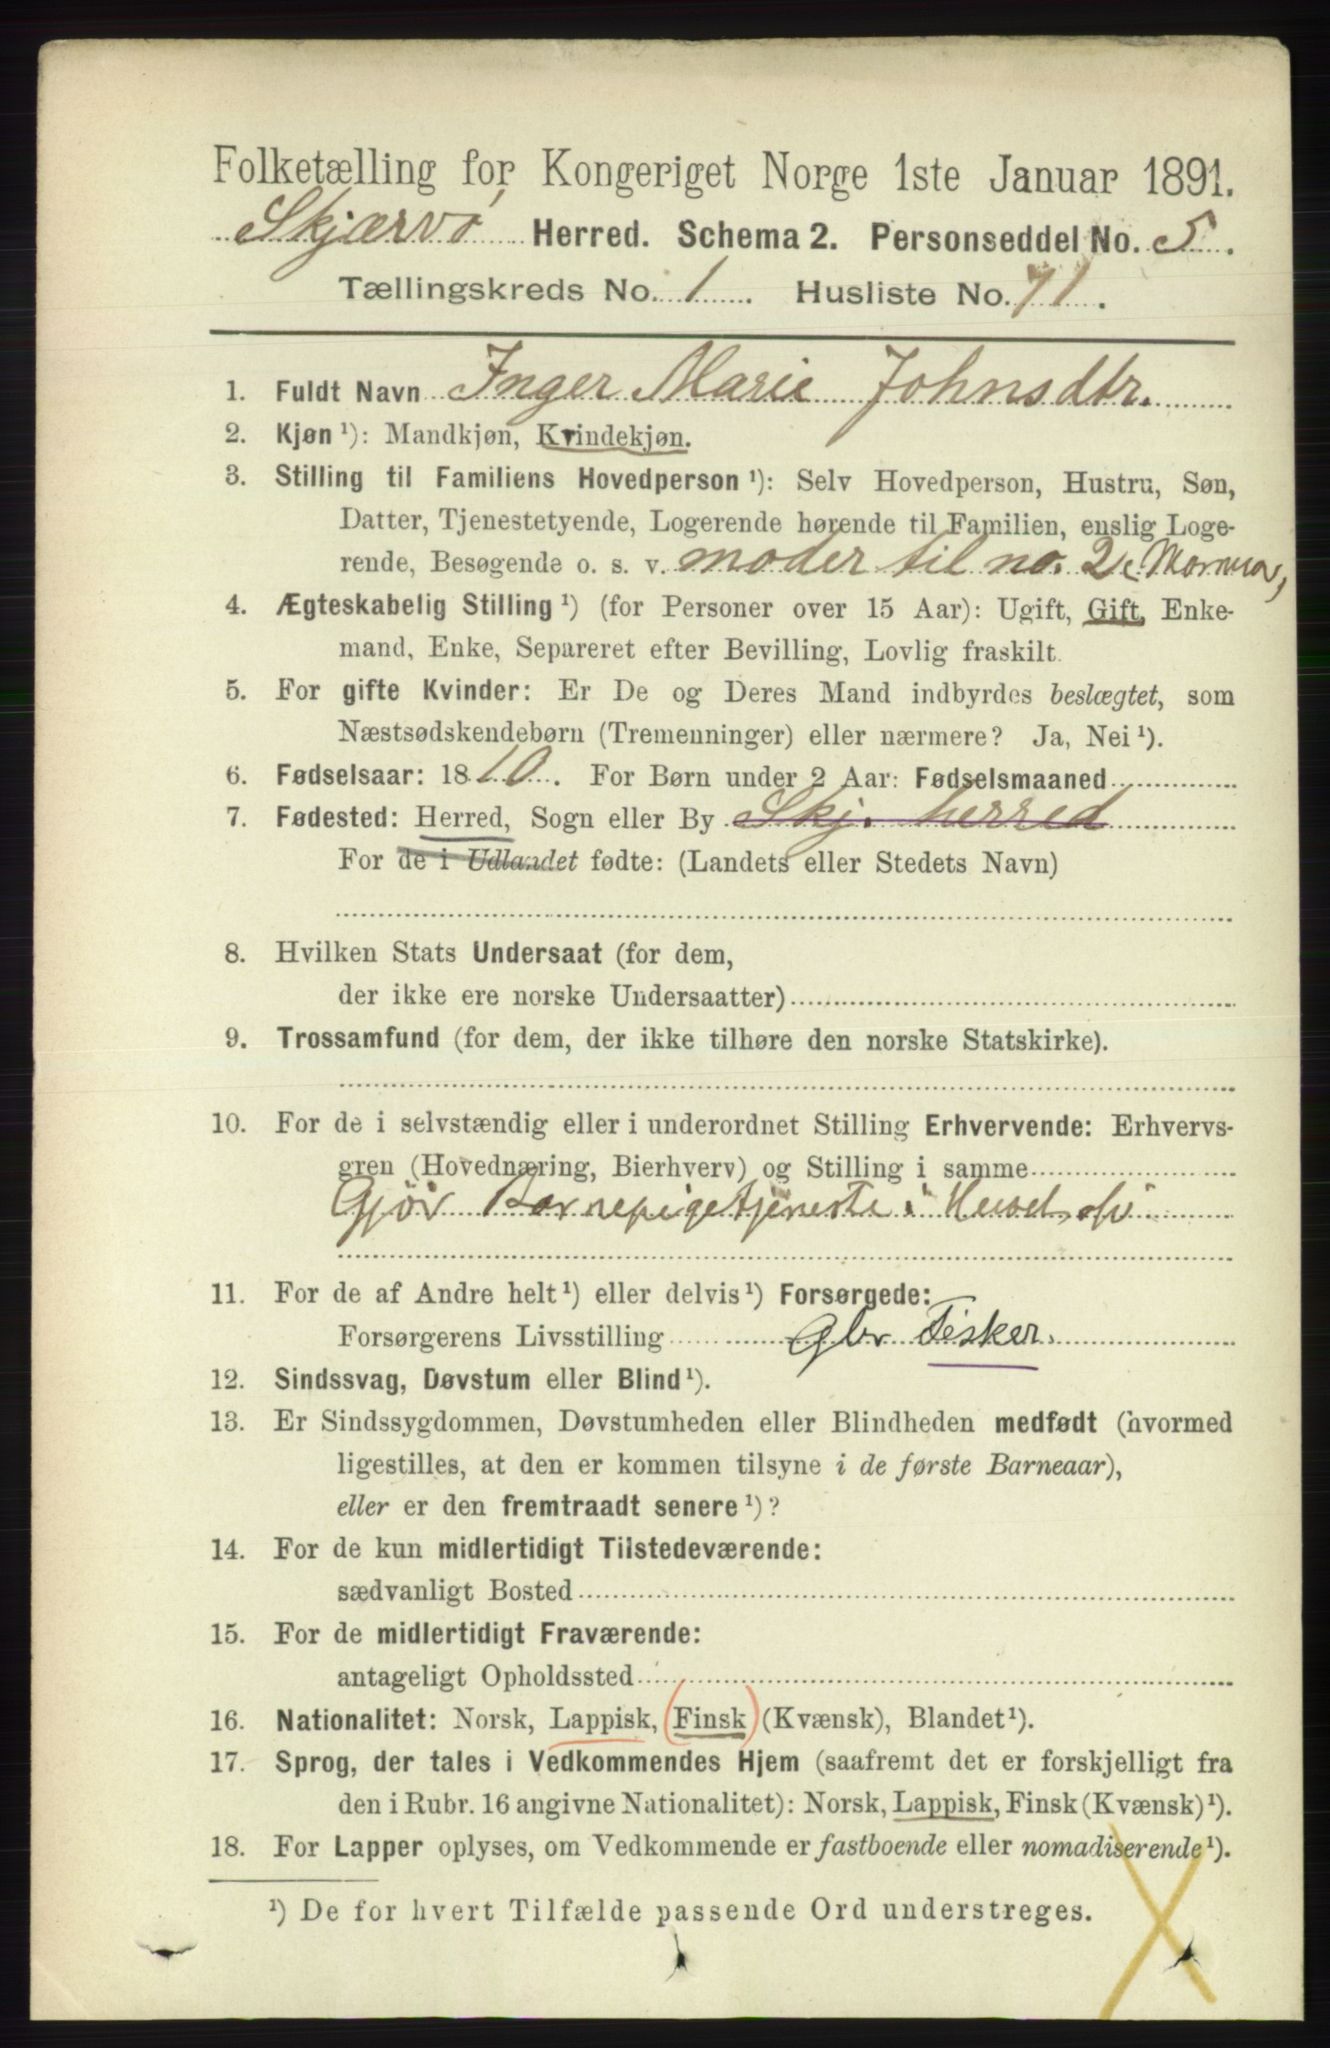 Folketælling for Kongeriget Norge 1ste Januar 1891.
Skjærvö Herred. Schema 2. Personseddel No. 5.
Tællingskreds No. 1. Husliste No. 71.
1. Fuldt Navn Inger Marie Johnsdtr.
2. Kjøn ¹): Mandkjøn, Kvindekjøn.
3. Stilling til Familiens Hovedperson ¹): Selv Hovedperson, Hustru, Søn,
Datter, Tjenestetyende, Logerende hørende til Familien, enslig Loge-
rende, Besøgende o. s. v. moder til no. 2,
4. Ægteskabelig Stilling ¹) (for Personer over 15 Aar): Ugift, Gift, Enke-
mand, Enke, Separeret efter Bevilling, Lovlig fraskilt.
5. For gifte Kvinder: Er De og Deres Mand indbyrdes beslægtet, som
Næstsødskendebørn (Tremenninger) eller nærmere? Ja, Nei ¹).
6. Fødselsaar: 1810. For Børn under 2 Aar: Fødselsmaaned
7. Fødested: Herred, Sogn eller By Skj. herred
For de i Udlandet fødte: (Landets eller Stedets Navn)
8. Hvilken Stats Undersaat (for dem,
der ikke ere norske Undersaatter)
9. Trossamfund (for dem, der ikke tilhøre den norske Statskirke).
10. For de i selvstændig eller i underordnet Stilling Erhvervende: Erhvervs-
gren (Hovednæring, Bierhverv) og Stilling i samme
Gjör Barnepigetjeneste i
11. For de af Andre helt ¹) eller delvis ¹) Forsørgede:
Forsørgerens Livsstilling Gbr Fisker.
12. Sindssvag, Døvstum eller Blind ¹).
13. Er Sindssygdommen, Døvstumheden eller Blindheden medfødt (hvormed
ligestilles, at den er kommen tilsyne i de første Barneaar),
eller er den fremtraadt senere ¹)?
14. For de kun midlertidigt Tilstedeværende:
sædvanligt Bosted
15. For de midlertidigt Fraværende:
antageligt Opholdssted
16. Nationalitet: Norsk, Lappisk, (Finsk) (Kvænsk), Blandet ¹).
17. Sprog, der tales i Vedkommendes Hjem (saafremt det er forskjelligt fra
den i Rubr. 16 angivne Nationalitet): Norsk, Lappisk, Finsk (Kvænsk) ¹).
18. For Lapper oplyses, om Vedkommende er fastboende eller nomadiserende ¹).
¹) De for hvert Tilfælde passende Ord understreges.